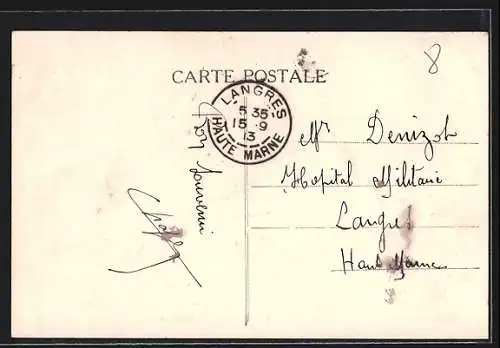 8
CARTE POSTALE
LANGRES
5 35
15 - 9
13
HAUTE MARNE
Bon Souvenir
Mr Denizot
Hopital Militaire
Langres
Haute Marne